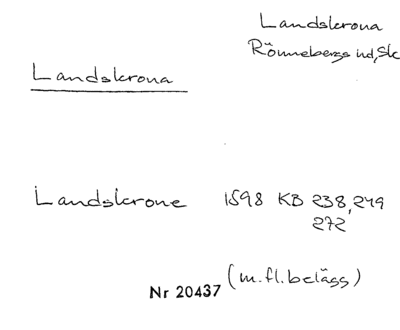 Landskrona
Rönnebergs hd, Sk
Landskrona
Landskrone 1598 KB 238, 249
272
(m.fl. belägg)
Nr 20437